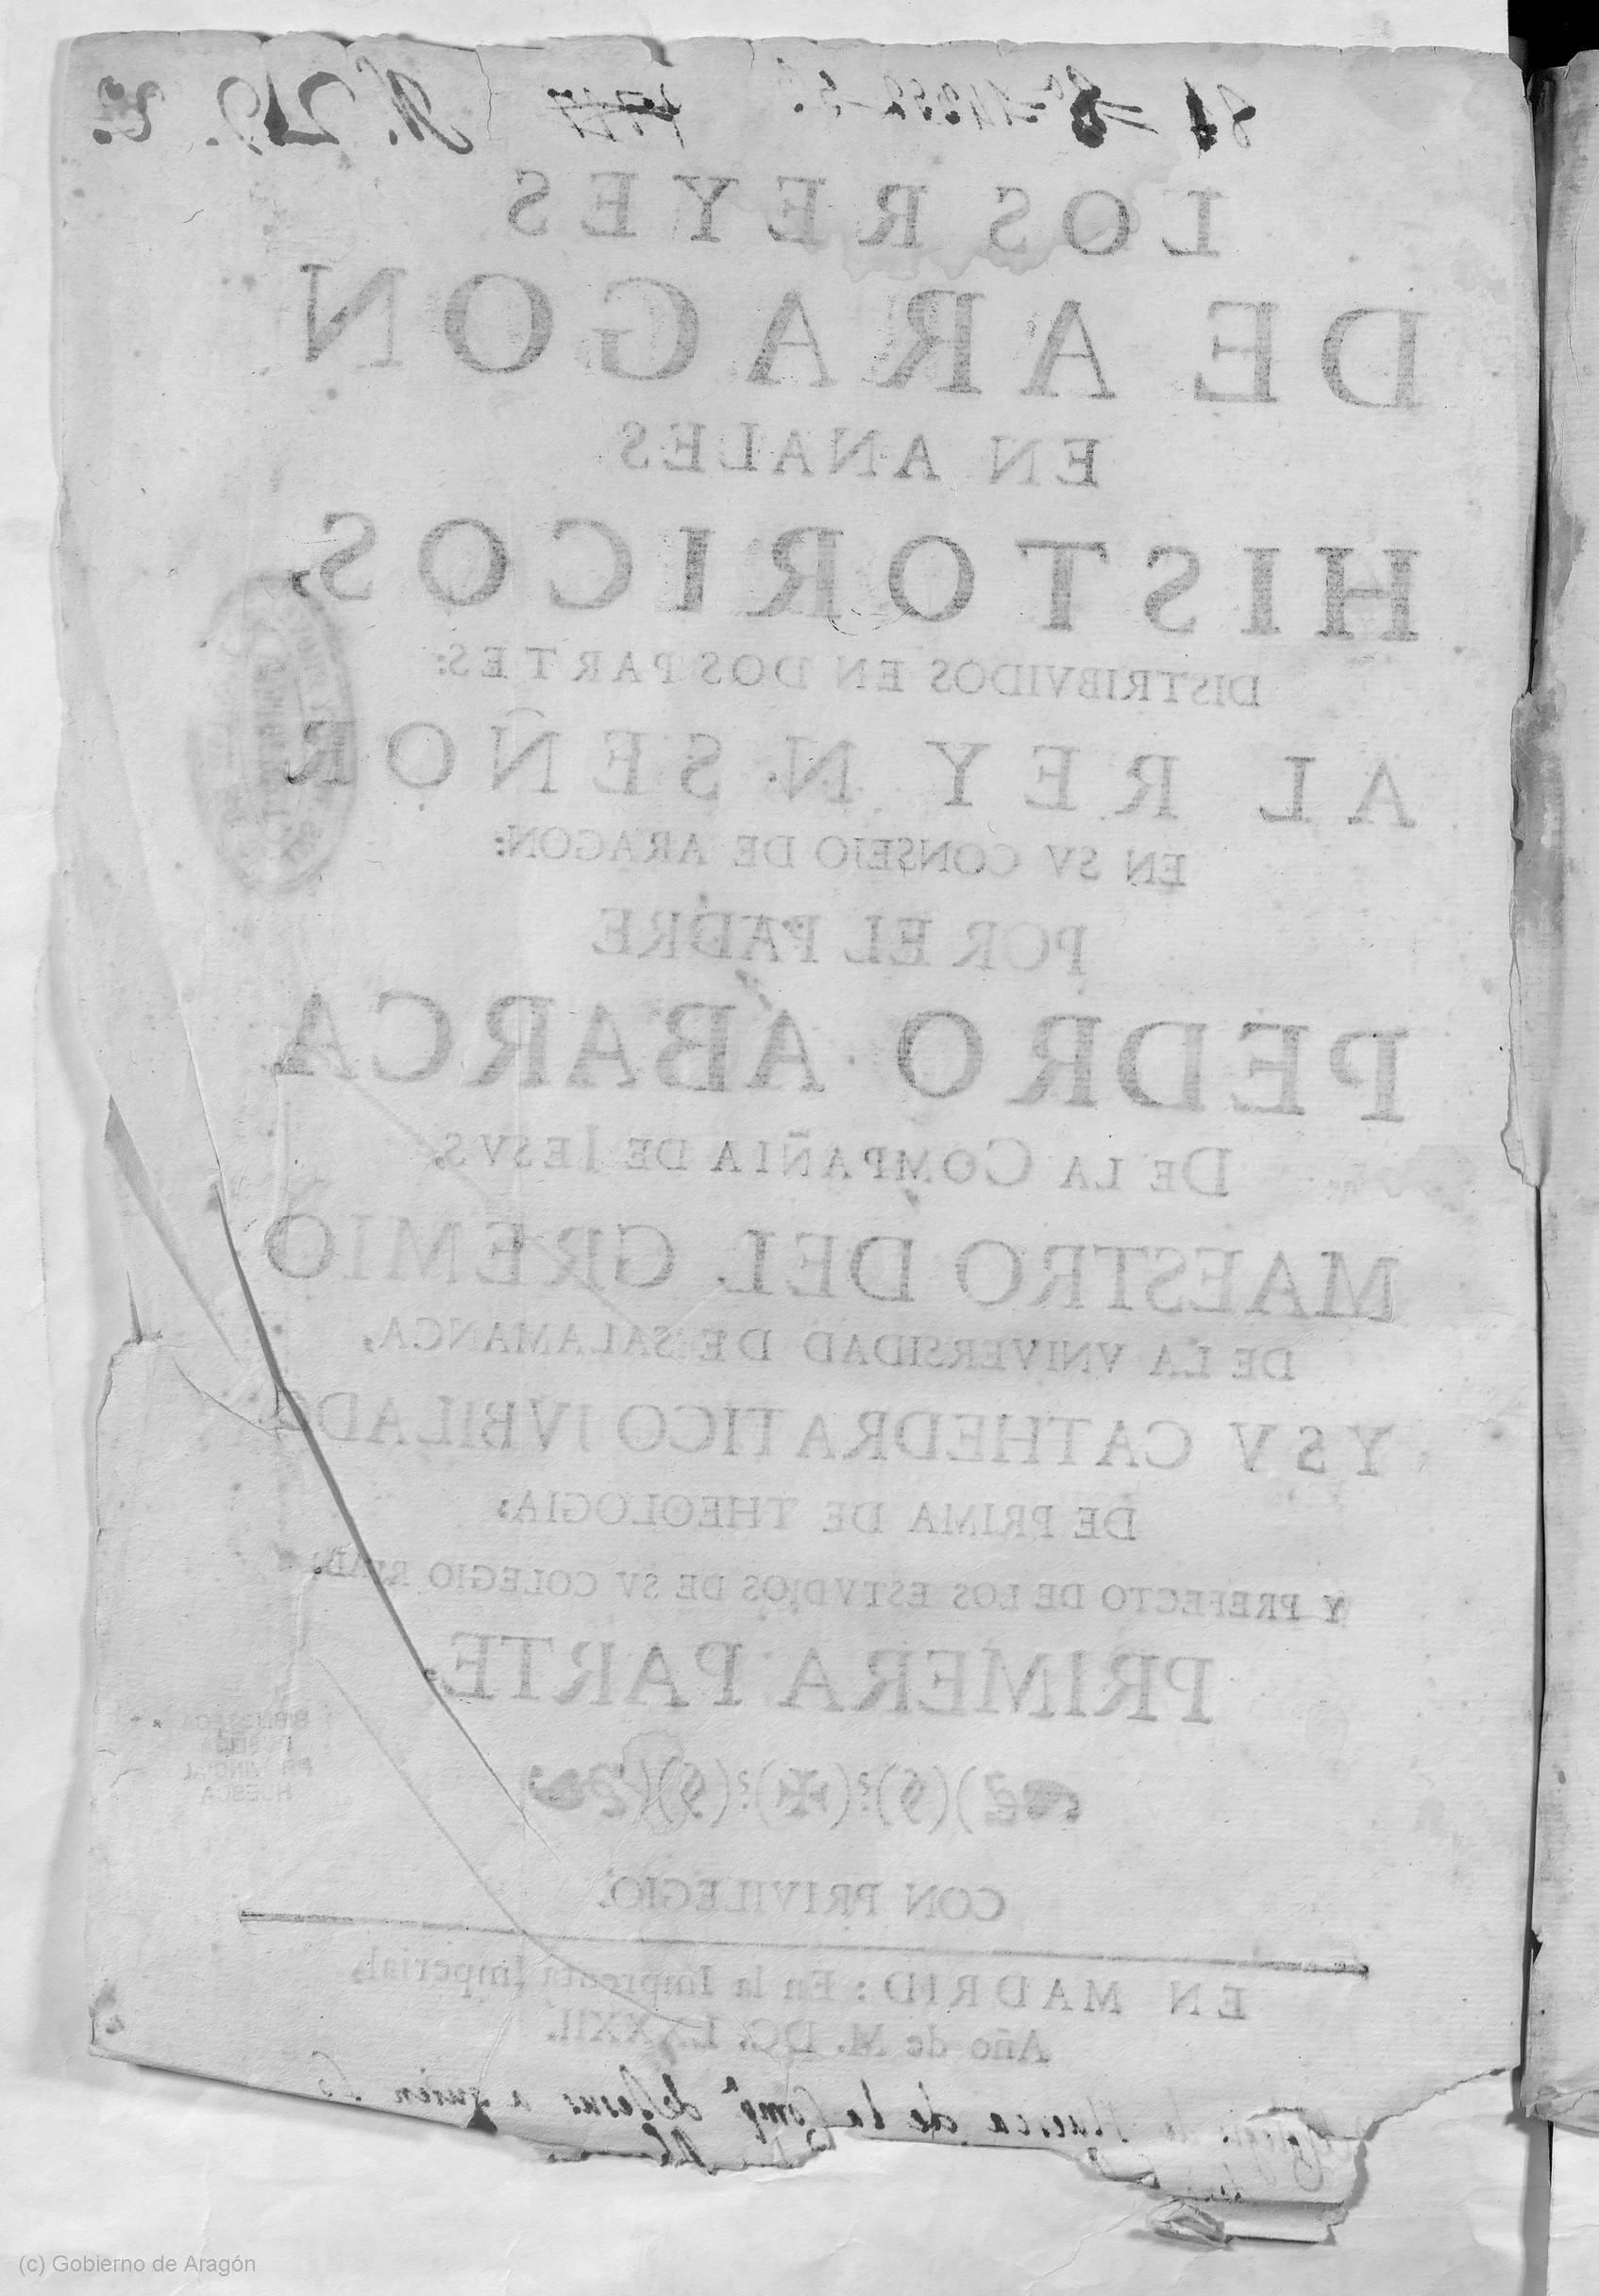 LOS REYES
DE ARAGON
EN ANALES
HISTORICOS,
DISTRIBVIDOS EN DOS PARTES:
AL REY N. SEÑOR
EN SV CONSEJO DE ARAGON:
POR EL PADRE
PEDRO ABARCA
DE LA COMPAÑIA DE JESVS,
MAESTRO DEL GREMIO
DE LA VNIVERSIDAD DE SALAMANCA,
Y SV CATHEDRATICO JVBILADO
DE PRIMA DE THEOLOGIA:
Y PREFECTO DE LOS ESTVDIOS DE SV COLEGIO REAL.
PRIMERA PARTE.
CON PRIVILEGIO.
EN MADRID: En la Imprenta Imperial,
Año de M. DC. LXXXII.
de Huesca de la Comp.ª de Jesus a quien
BIBLIOTECA
PUBLICA
PROVINCIAL
HUESCA
(c) Gobierno de Aragón